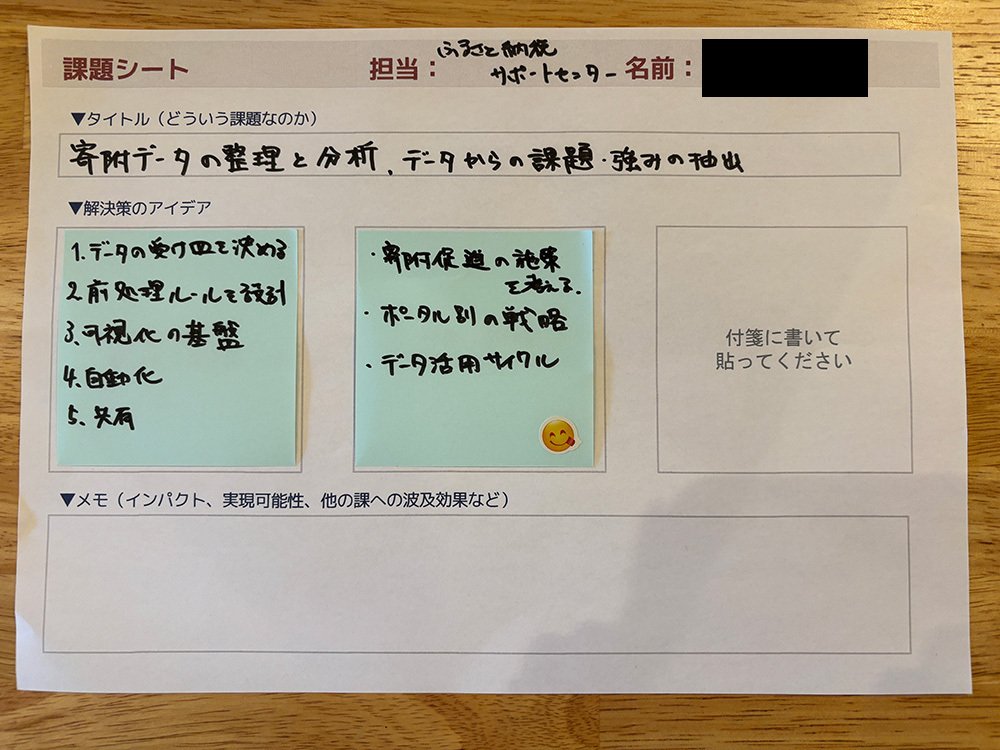 課題シート
担当：ふるさと納税
サポートセンター
名前：
▼タイトル（どういう課題なのか）
寄附データの整理と分析、データからの課題・強みの抽出
▼解決策のアイデア
1.データの受け皿を決める
2.前処理ルールを設計
3.可視化の基盤
4.自動化
5.共有
・寄附促進の施策
を考える。
・ポータル別の戦略
・データ活用サイクル
付箋に書いて
貼ってください
▼メモ（インパクト、実現可能性、他の課への波及効果など）